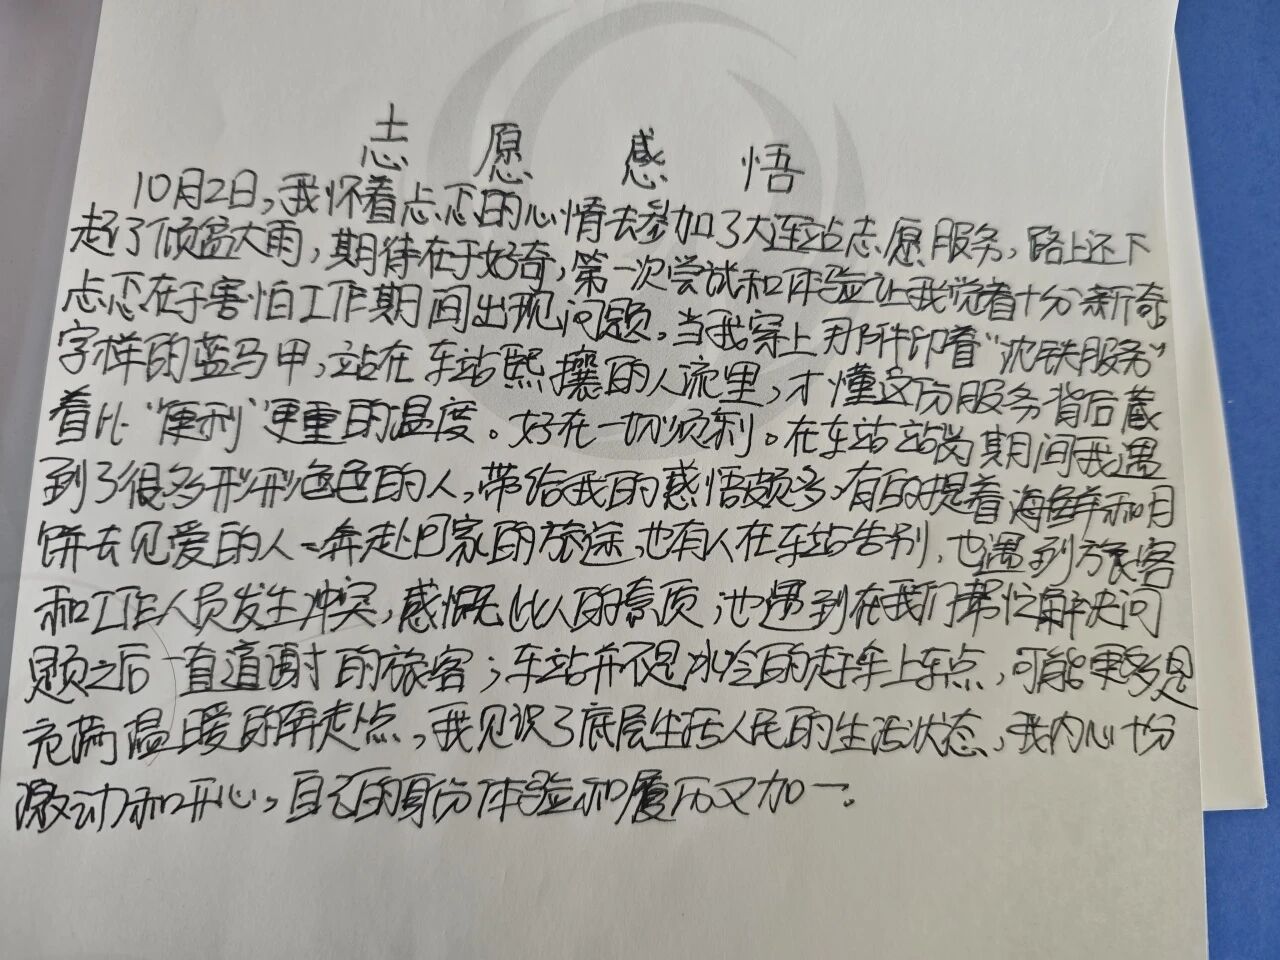 志愿感悟
10月2日,我怀着忐忑的心情去参加了大连站志愿服务,路上还下
起了倾盆大雨,期待在于好奇,第一次尝试和体验让我觉着十分新奇
忐忑在于害怕工作期间出现问题。当我穿上那件印着“沈铁服务”
字样的蓝马甲,站在车站熙攘的人流里,才懂这份服务背后藏
着比“便利”更重的温度。好在一切顺利。在车站站岗期间我遇
到了很多形形色色的人,带给我的感悟颇多,有的提着海鲜和月
饼去见爱的人、奔赴回家的旅途,也有人在车站告别,也遇到旅客
和工作人员发生冲突,感慨此人的素质,也遇到在我们帮忙解决问
题之后一直道谢的旅客;车站并不是冰冷的赶车上车点,可能更多是
充满温暖的奔走点,我见识了底层生活人民的生活状态,我内心十分
激动和开心,自己的身份体验和履历又加一。